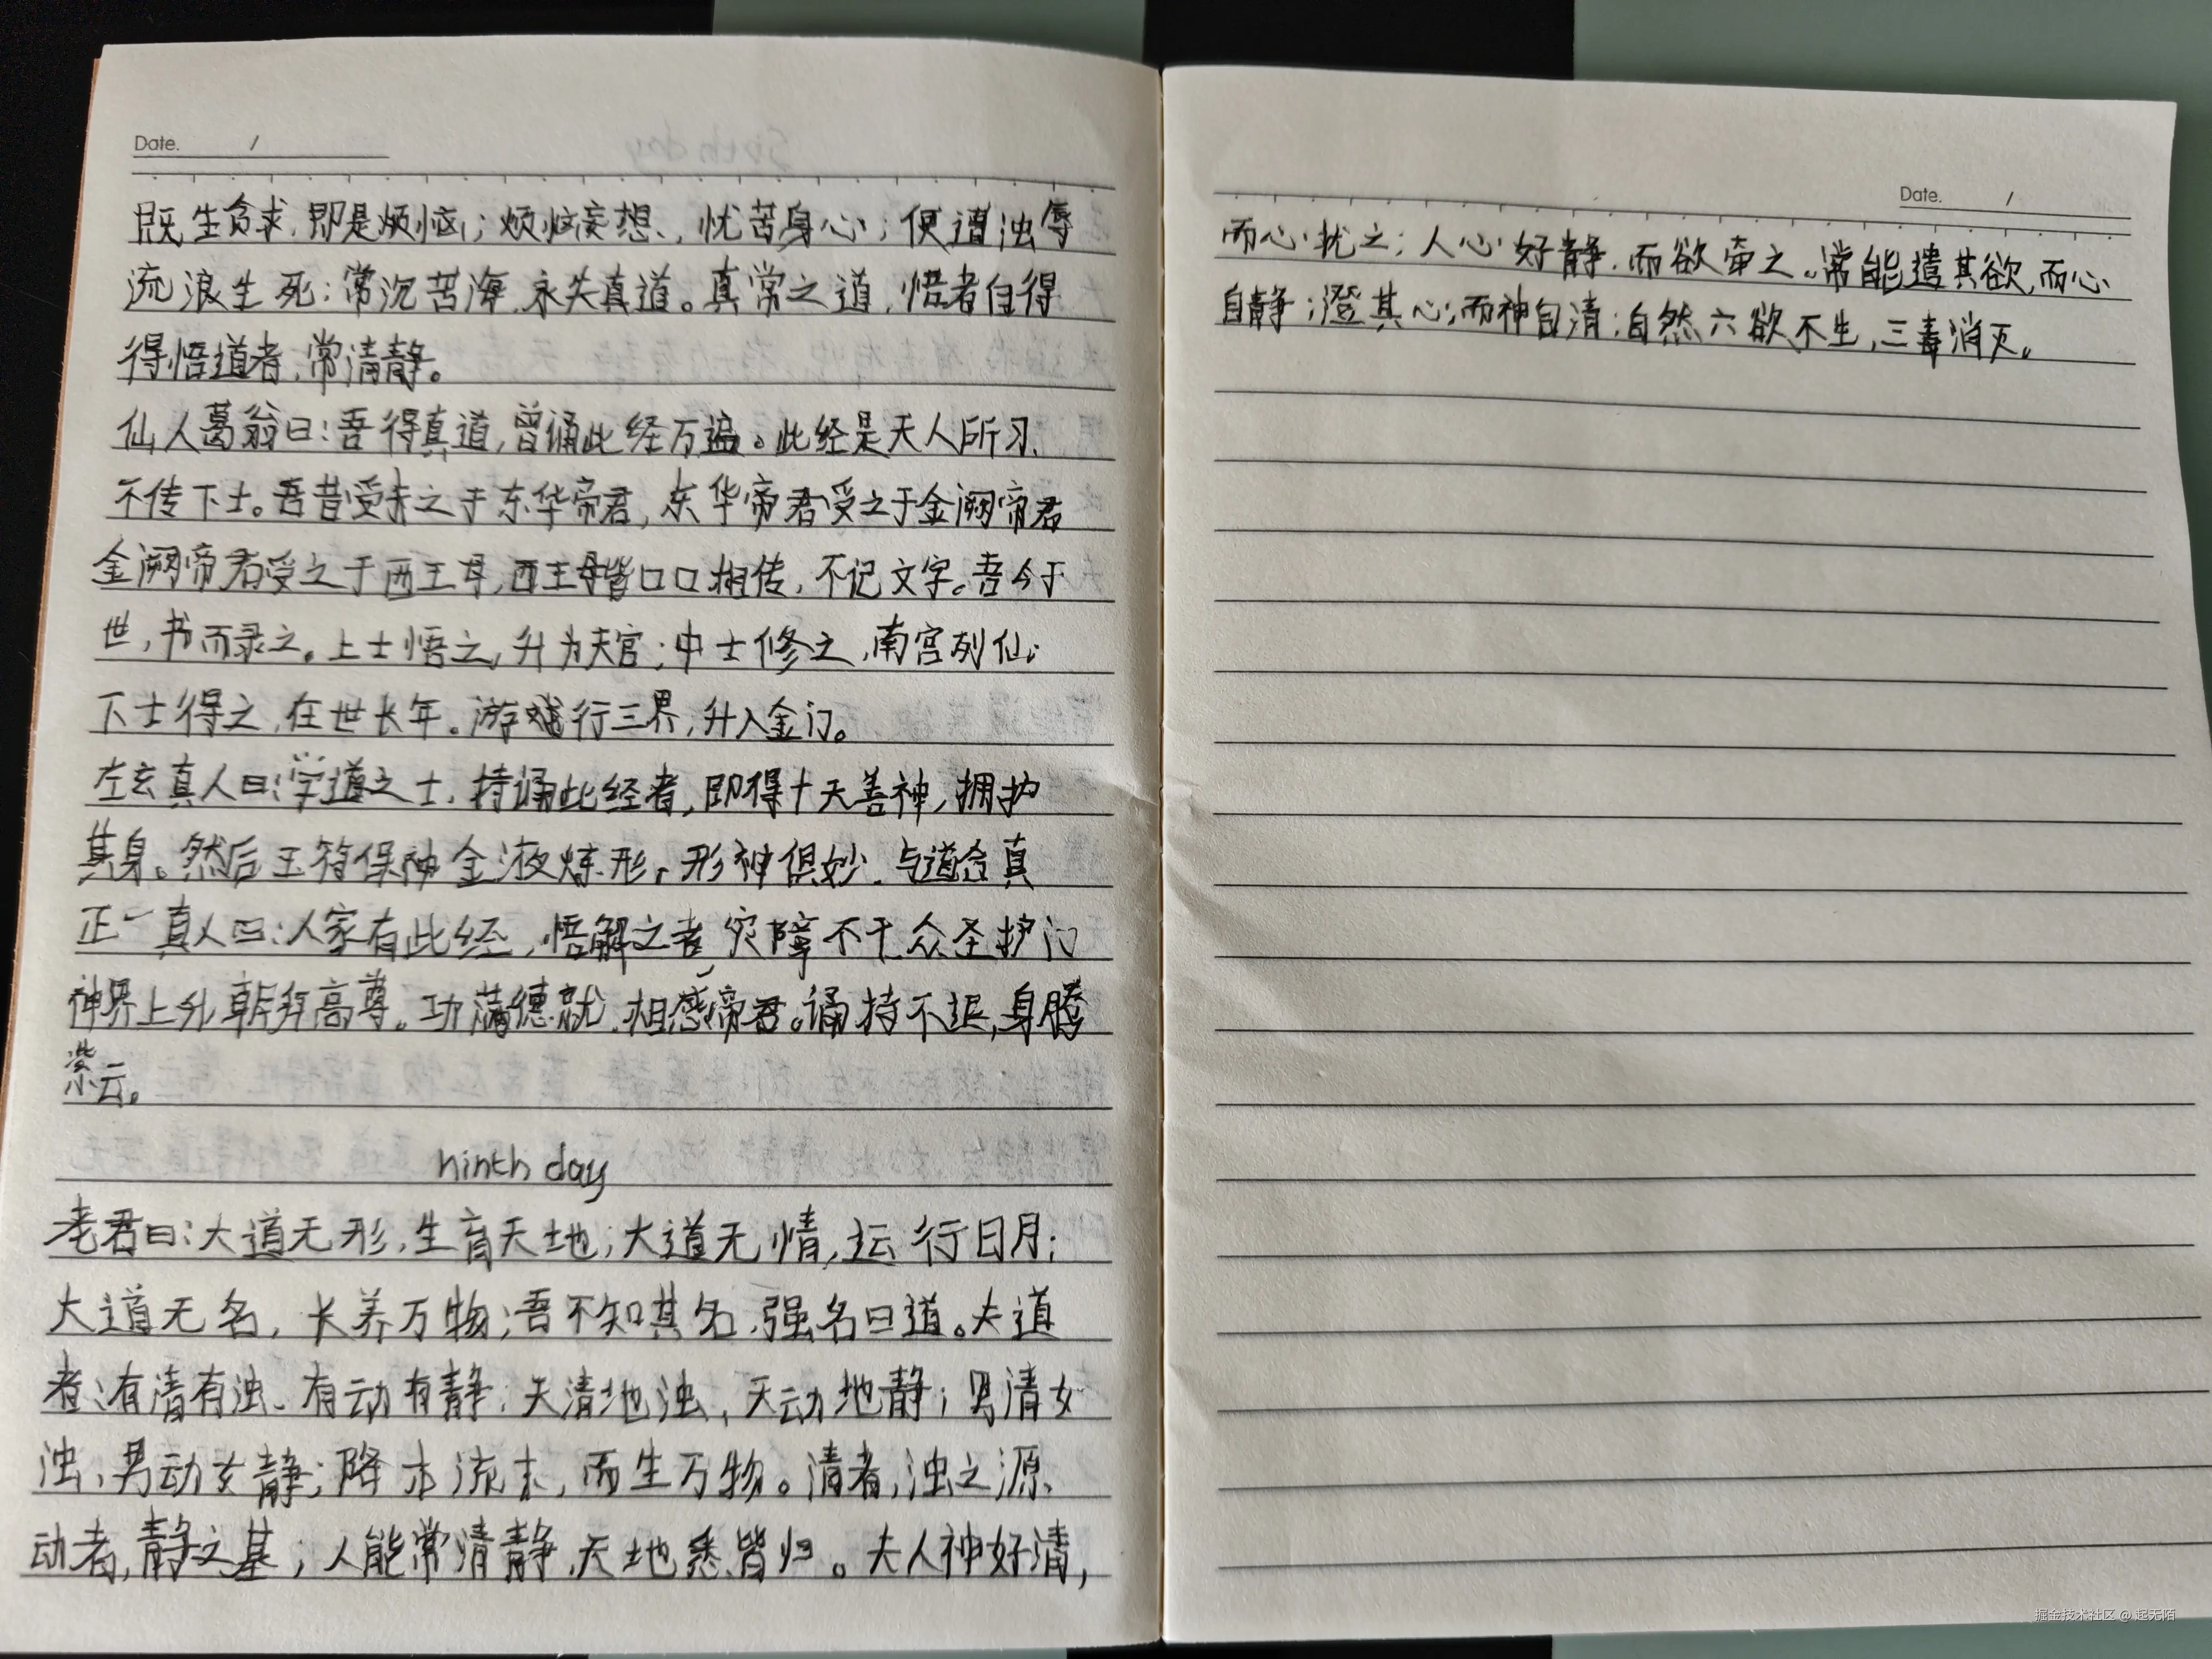 Date. /
既生贪求,即是烦恼;烦恼妄想,忧苦身心;便遭浊辱
流浪生死;常沉苦海,永失真道。真常之道,悟者自得
得悟道者,常清静。
仙人葛翁曰:吾得真道,曾诵此经万遍。此经是天人所习,
不传下士。吾昔受之于东华帝君,东华帝君受之于金阙帝君
金阙帝君受之于西王母,西王母皆口口相传,不记文字。吾今于
世,书而录之。上士悟之,升为天官;中士修之,南宫列仙;
下士得之,在世长年。游行三界,升入金门。
左玄真人曰:学道之士,持诵此经者,即得十天善神,拥护
其身。然后玉符保神金液炼形,形神俱妙,与道合真
正一真人曰:人家有此经,悟解之者,灾障不干众圣护门
神界上升朝拜高尊。功满德就,相感帝君。诵持不退,身腾
紫云。
ninth day
老君曰:大道无形,生育天地;大道无情,运行日月;
大道无名,长养万物;吾不知其名,强名曰道。夫道
者:有清有浊、有动有静;天清地浊,天动地静;男清女
浊,男动女静;降本流末,而生万物。清者,浊之源、
动者,静之基;人能常清静,天地悉皆归。夫人神好清,
Date. /
而心扰之;人心好静,而欲牵之。常能遣其欲,而心
自静;澄其心;而神自清;自然六欲不生,三毒消灭。
掘金技术社区 @ 起无陌